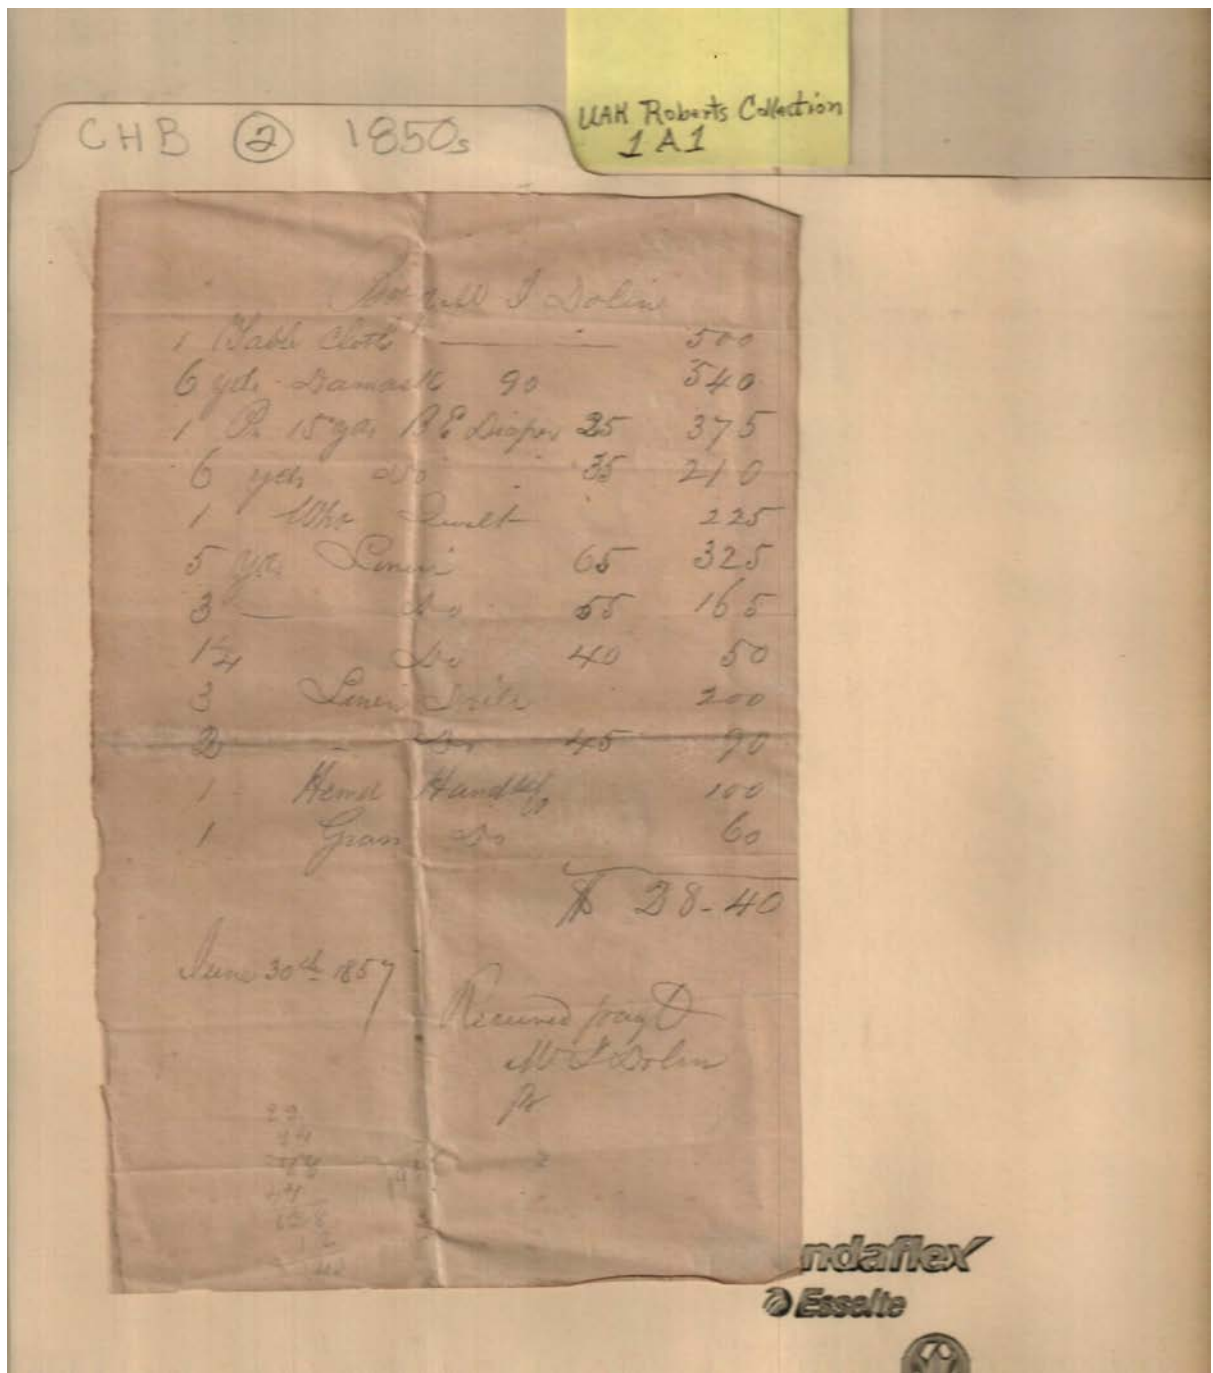 CHB ② 1850s
UAH Roberts Collection
1A1
Dolin
1 Table Cloth 500
6 yds Damask 90 540
1 Pc 15 yds B E Diaper 25 375
6 yds Do 35 210
1 Quilt 225
5 yds Linen 65 325
3 — Do 55 165
1¼ Do 40 50
3 Linen 200
2 - Do 45 90
1 Hemd Handkf 100
1 Grass Do 60
$ 28-40
June 30th 1857
Received payt
Dolin
ndaflex
Esselte